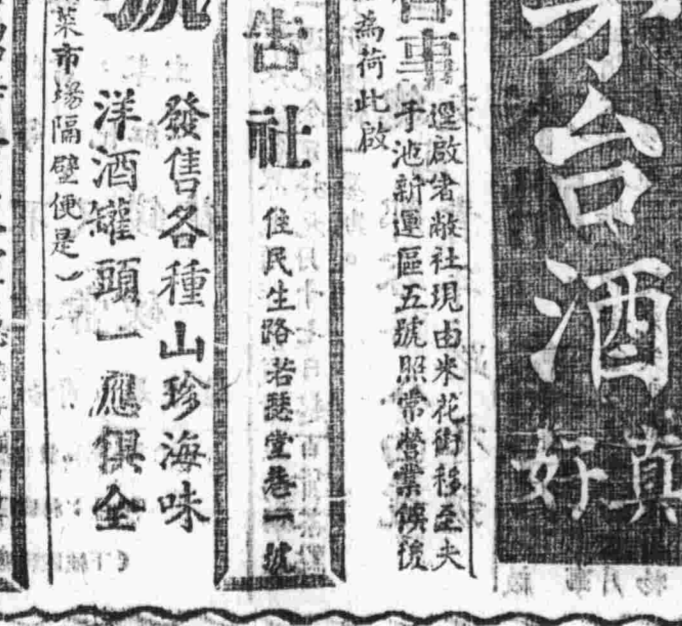 茅台酒
真好
啓事
逕啟者敝社現由米花街移至夫
子池新運區五號照常營業
為荷此啟
告社
住民生路若瑟堂巷一號
發售各種山珍海味
洋酒罐頭一應俱全
號
菜市場隔壁便是）